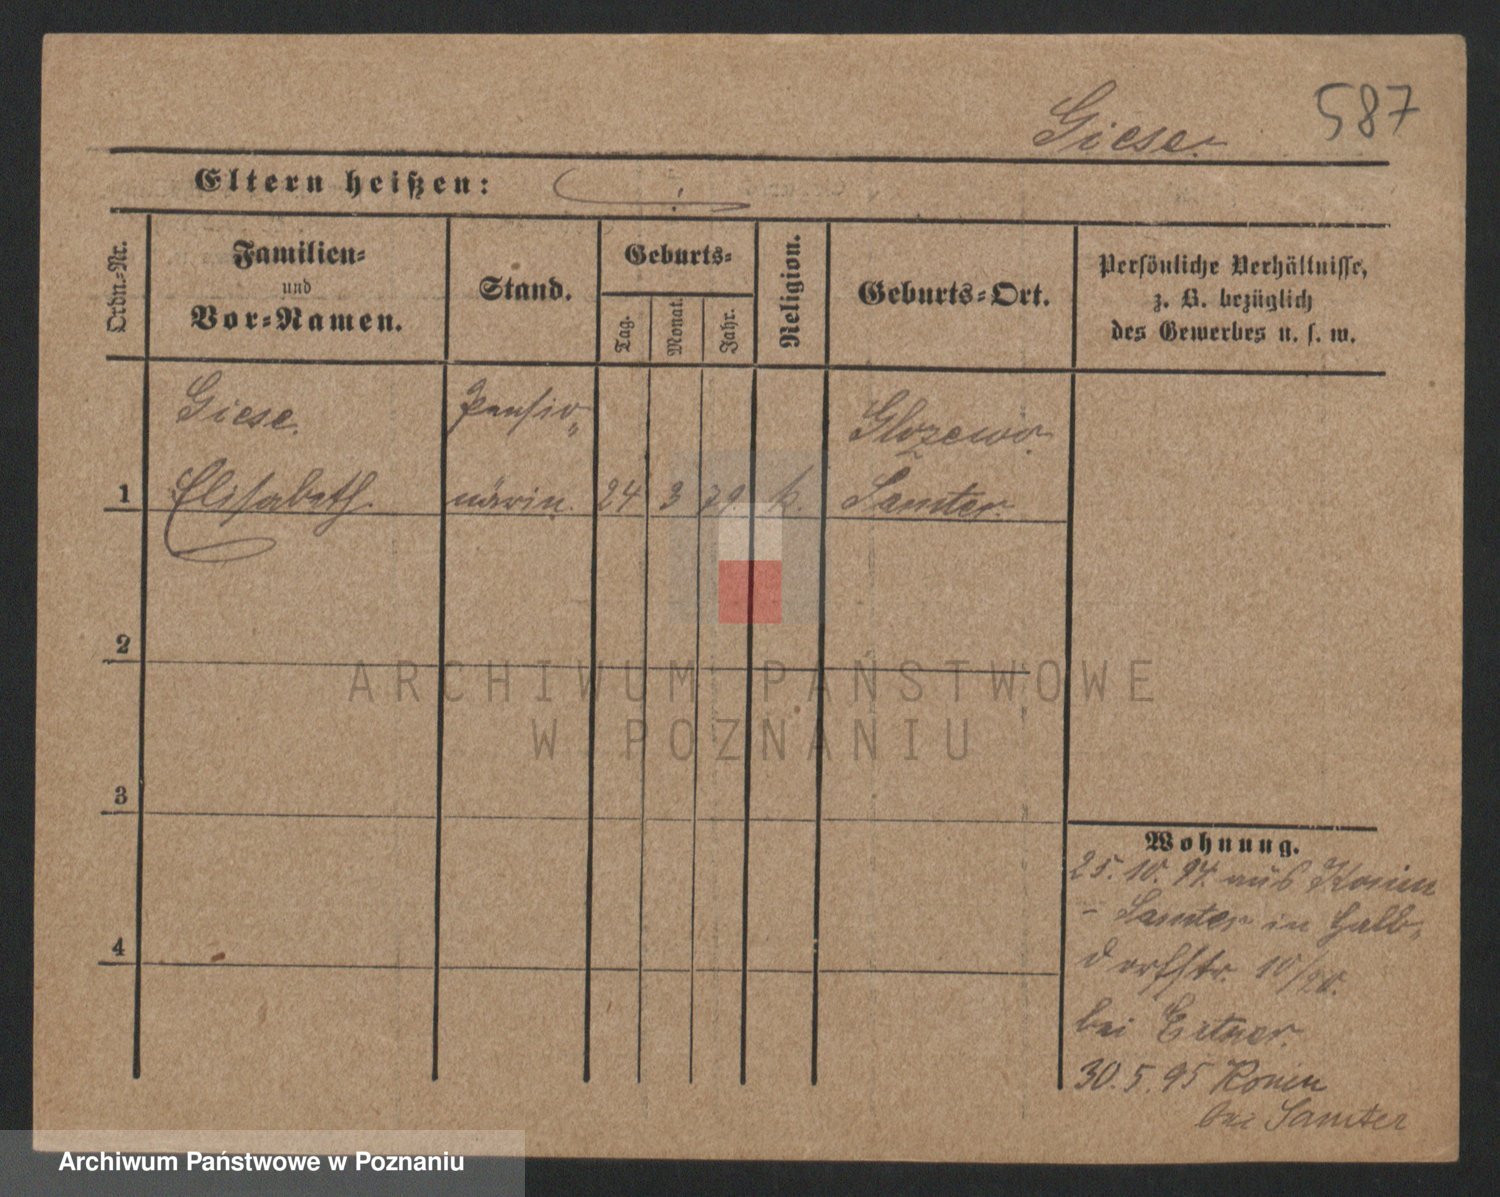 587
Giese.
Eltern heißen:
Ordn.-Nr.
Familien-
und
Vor-Namen.
Stand.
Geburts-
Tag.
Monat.
Jahr.
Religion.
Geburts-Ort.
Persönliche Verhältnisse,
z. B. bezüglich
des Gewerbes u. s. w.
Giese.
Pensio„
Glozewo
1 Elisabeth. närin. 24 3 79. k. Samter.
2
3
4
ARCHIWUM PAŃSTWOWE
W POZNANIU
Wohnung.
25. 10. 94. aus
- Samter in Halb-
dorfstr. 10/20.
bei
30. 5. 95
bei Samter
Archiwum Państwowe w Poznaniu